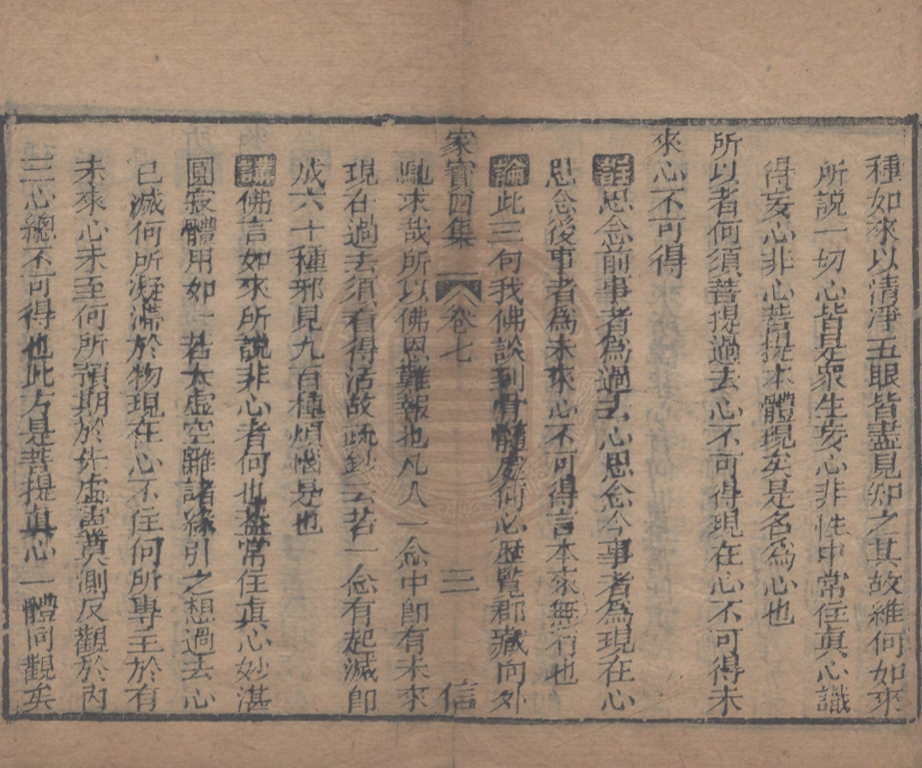 種如來以清淨五眼皆盡見知之其故維何如來
所說一切心皆是衆生妄心非性中常住眞心識
得妄心非心菩提本體現矣是名為心也
所以者何須菩提過去心不可得現在心不可得未
來心不可得
註思念前事者為過去心思念今事者為現在心
思念後事者為未來心不可得言本來無有也
論此三句我佛談到骨髓處何必歷覽群藏向外
馳求哉所以佛恩難報也凡人一念中卽有未來
家寳四集 卷七 三 信
現在過去須看得活故疏鈔云若一念有起滅卽
成六十種邪見九百種煩惱是也
講佛言如來所說非心者何也葢常住眞心妙湛
圓寂體用如一若太虛空離諸緣引之想過去心
已滅何所凝滯於物現在心不住何所專主於有
未來心未至何所預期於先虛靈莫測反觀於內
三心總不可得也此方是菩提眞心一體同觀矣